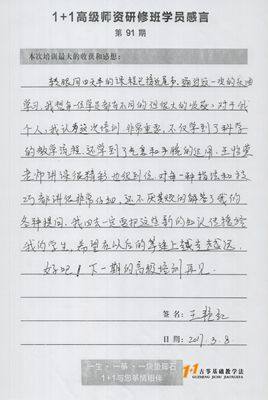 1+1高级师资研修班学员感言
第 91 期
本次培训最大的收获和感想:
转眼间四天半的课程已接近尾声,通过这一次的在面
学习,我想每一位学员都有不同的但很大的收获;对于我
个人,我认为这次培训非常重要,不仅学到了科学
的教学流程,还学到了气息和手腕的运用,王怡莹
老师讲课很精彩,也很到位,对每一种指法和技
巧都讲得非常仔细,还不厌其烦的解答了我们
各种提问,我回去一定要把这些新的知识传播给
我的学生,希望在以后的筝途上越走越远。
好吧!下一期的高级培训再见。
签名:王艳红
日期:2017.3.8.
一生·一筝·一块垫脚石
1+1与您筝情相伴
1+1 古筝基础教学法
GUZHENG JICHU JIAOXUEFA